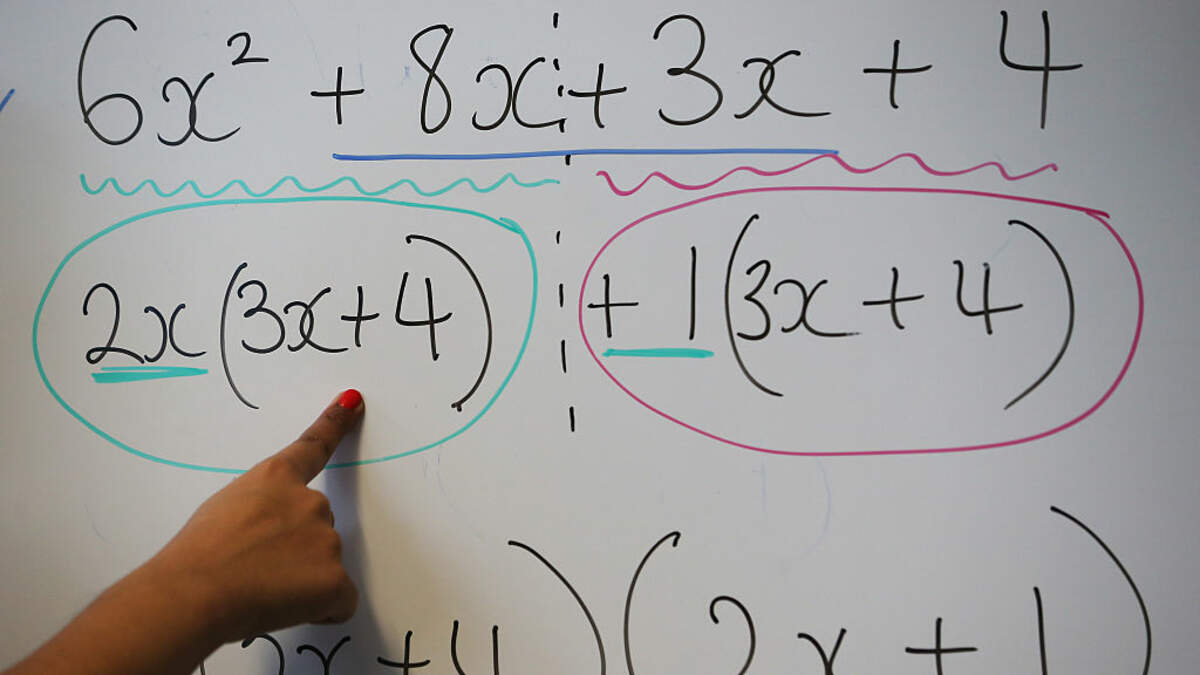 6x² + 8x + 3x + 4
2x(3x+4) +1(3x+4)
(3x+4)(2x+1)